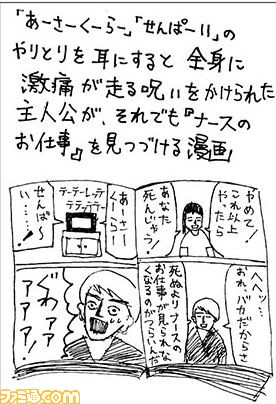 「あーさーくーらー」「せんぱーい」の
やりとりを耳にすると全身に
激痛が走る呪いをかけられた
主人公が、それでも『ナースの
お仕事』を見つづける漫画」
やめて!
これ以上
やったら
あなた
死んじゃう!
ヘヘッ…
おれ、バカだからさ
死ぬよりナースの
お仕事が見られなく
なるのがつらいんで
あーさー
くーらー
テーテーレッテ
テテッテテー
せんぱ〜
い……!
ぐわァァ
アアア!
ファミ通.com